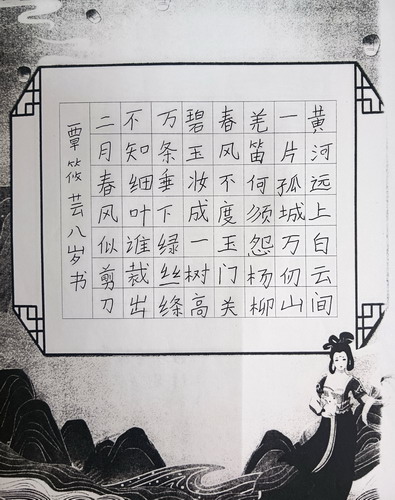 黄河远上白云间
一片孤城万仞山
羌笛何须怨杨柳
春风不度玉门关
碧玉妆成一树高
万条垂下绿丝绦
不知细叶谁裁出
二月春风似剪刀
覃筱芸八岁书